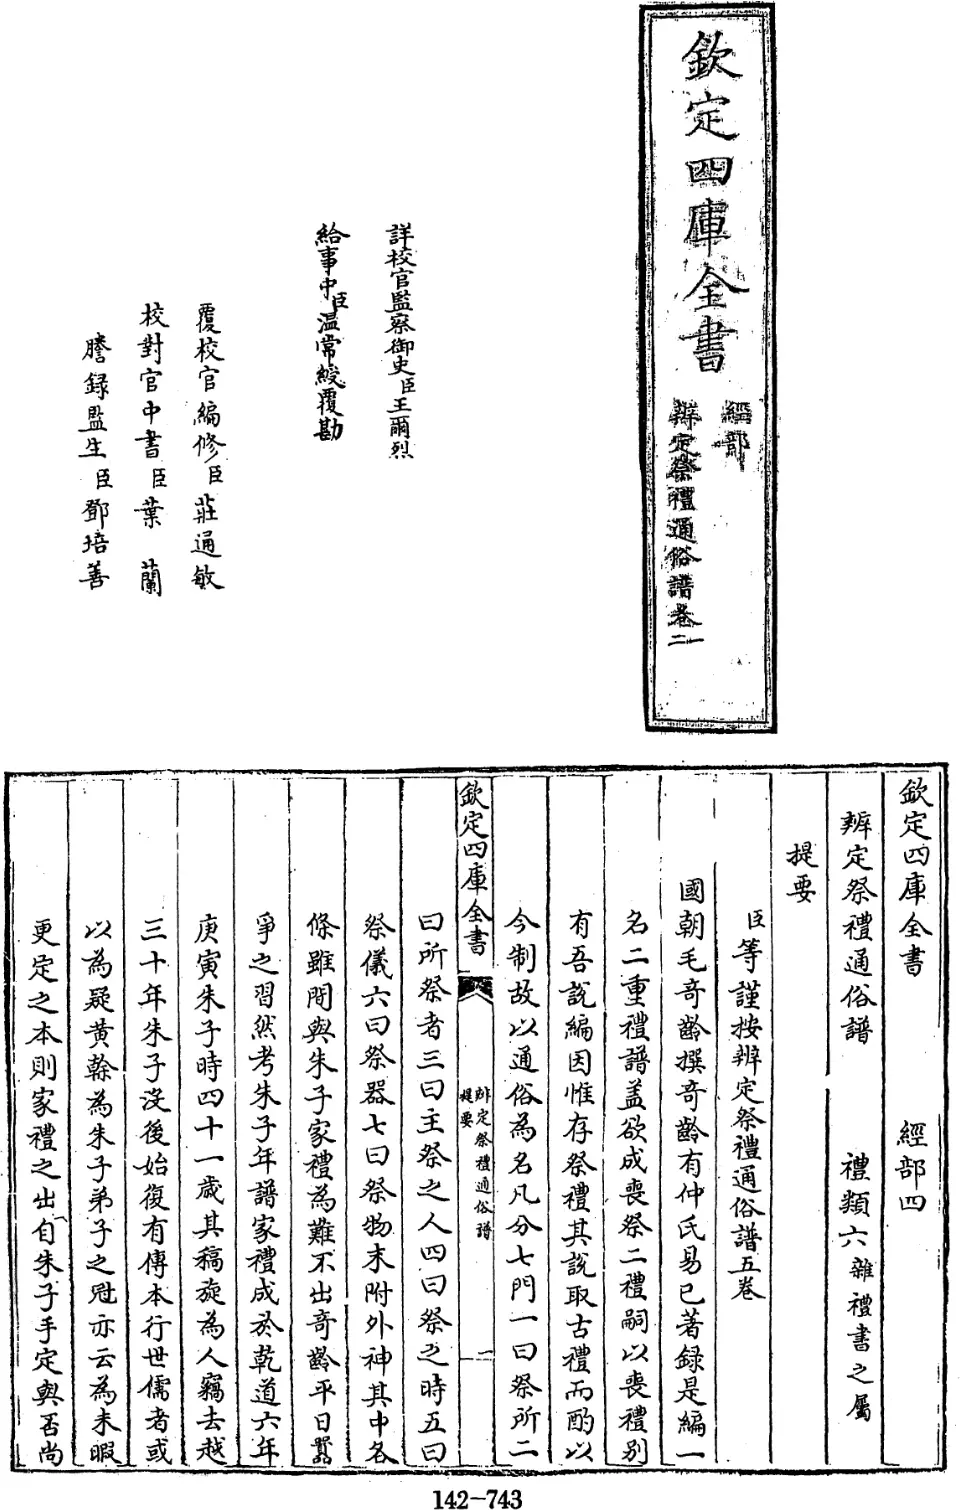 欽定四庫全書
經部
辨定祭禮通俗譜卷一二
詳校官監察御史臣王爾烈
給事中臣溫常綬覆勘
覆校官編修臣莊通敏
校對官中書臣葉蘭
謄録監生臣鄧培善
欽定四庫全書 經部四
辨定祭禮通俗譜 禮類六雜禮書之屬
提要
臣等謹按辨定祭禮通俗譜五卷
國朝毛奇齡撰奇齡有仲氏易已著録是編一
名二重禮譜蓋欲成喪祭二禮嗣以喪禮别
有吾說編因惟存祭禮其說取古禮而酌以
今制故以通俗為名凡分七門一曰祭所二
欽定四庫全書
辨定祭禮通俗譜
提要
一
曰所祭者三曰主祭之人四曰祭之時五曰
祭儀六曰祭器七曰祭物末附外神其中各
條雖間與朱子家禮為難不出奇齡平日囂
爭之習然考朱子年譜家禮成於乾道六年
庚寅朱子時四十一歲其稿旋為人竊去越
三十年朱子没後始復有傳本行世儒者或
以為疑黄榦為朱子弟子之冠亦云為未暇
更定之本則家禮之出自朱子手定與否尚
142-743